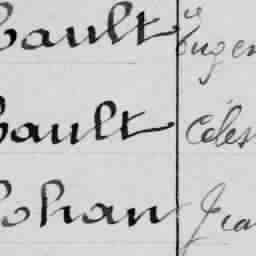 bault Eugèn
bault Céles
ohan Jea